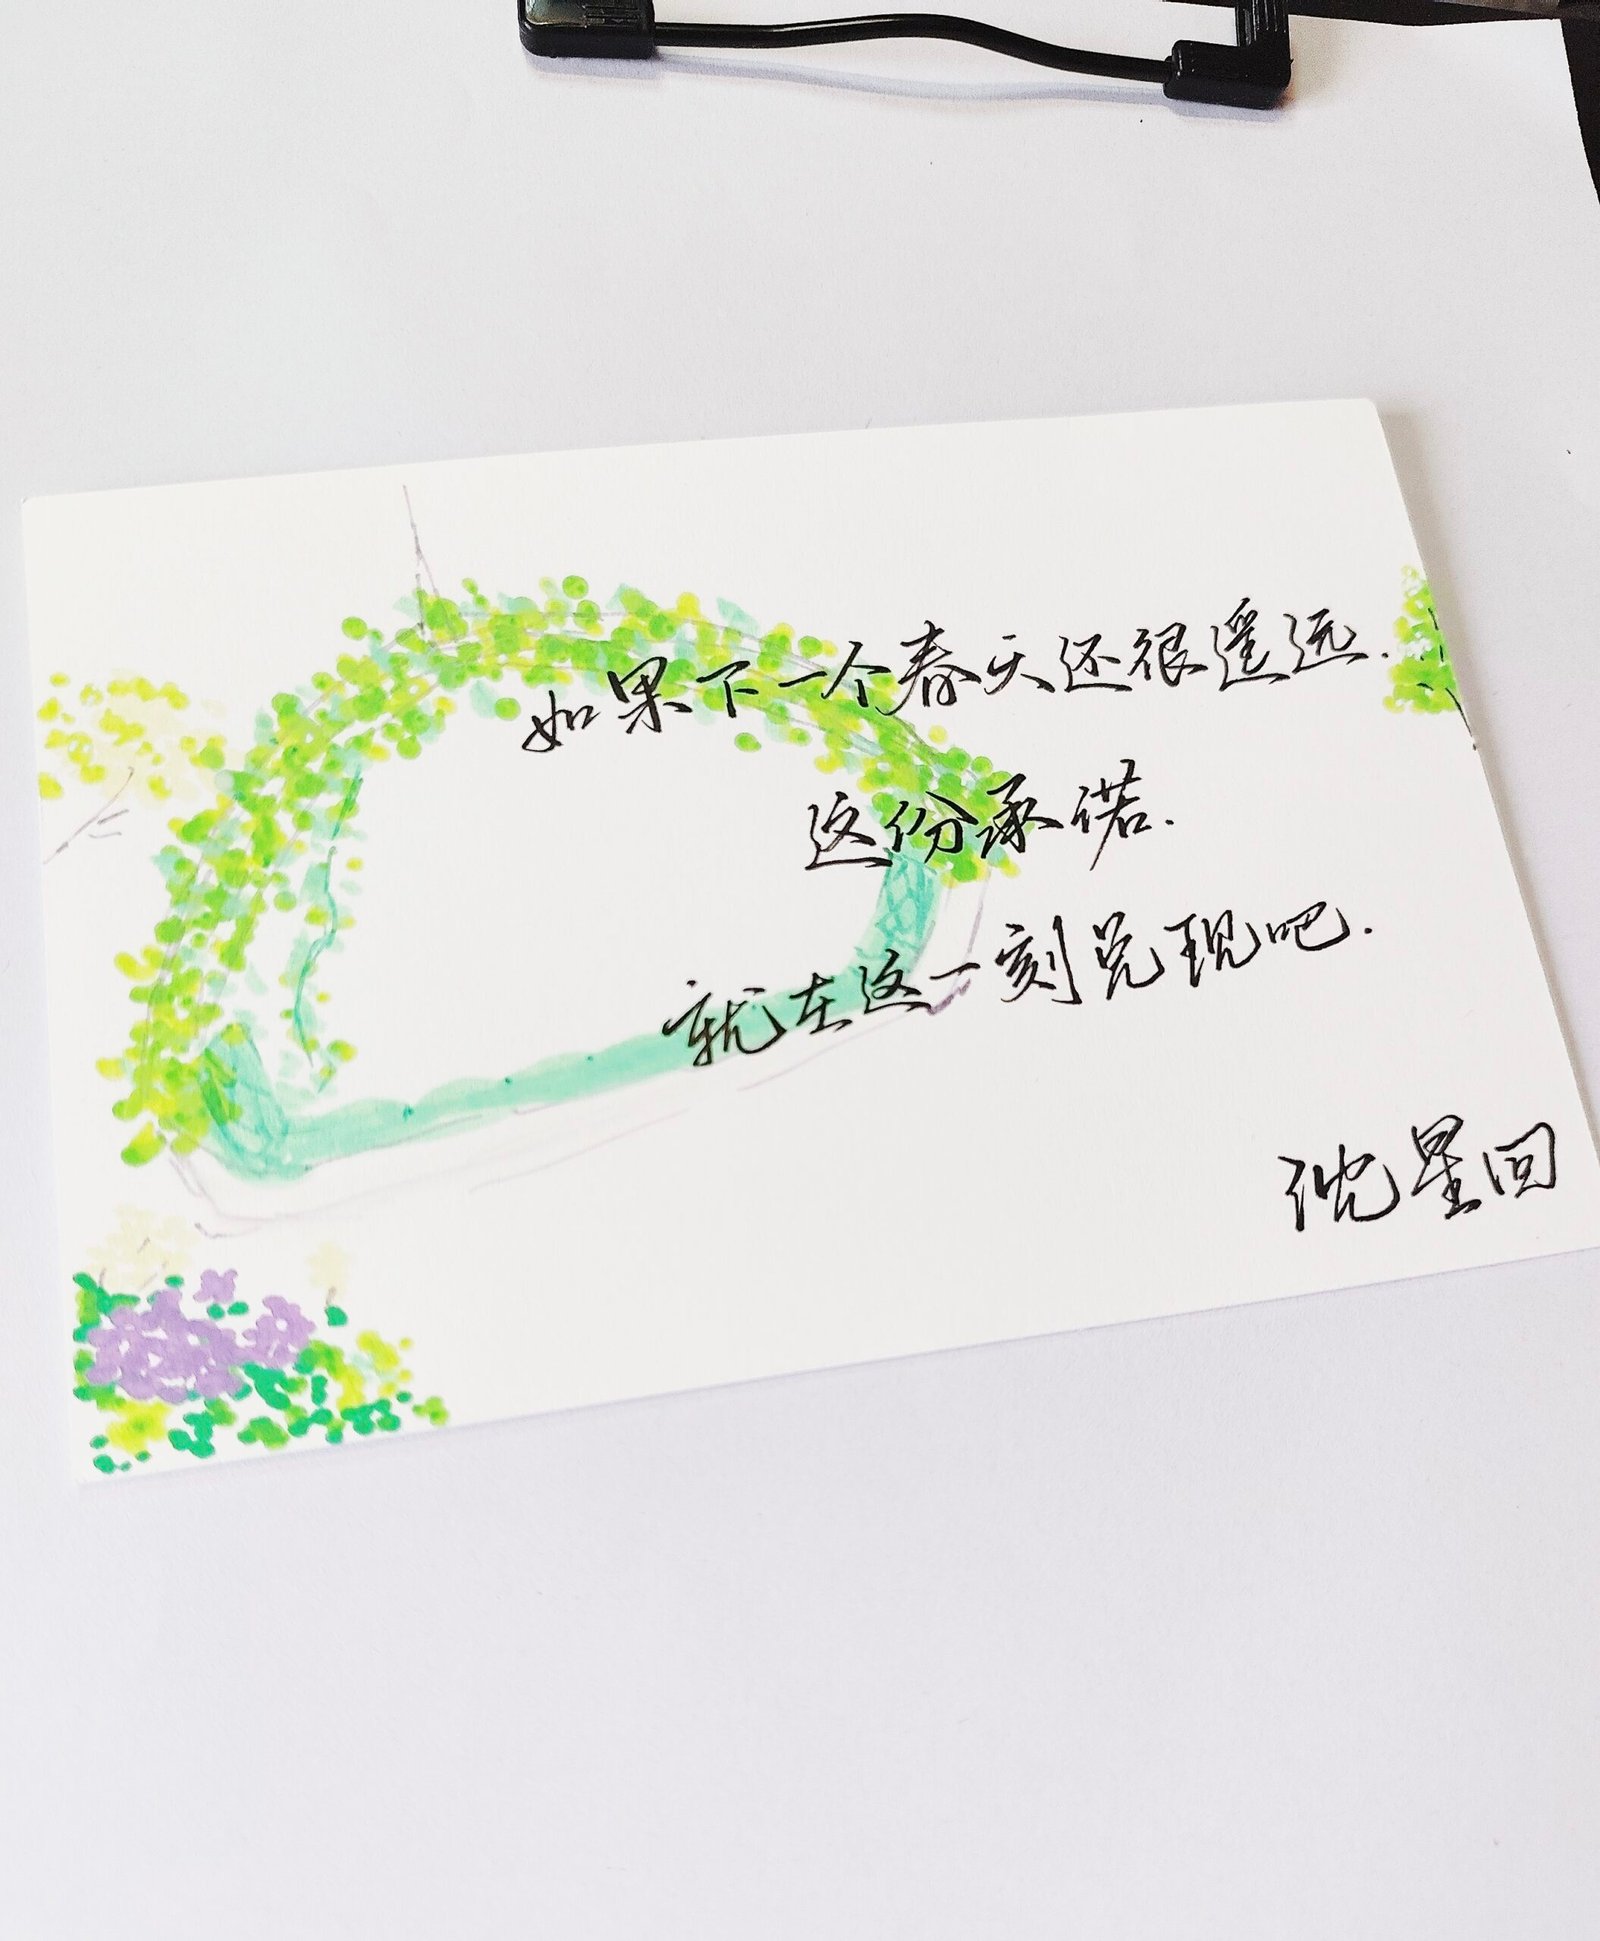 如果下一个春天还很遥远.
这份承诺.
就在这一刻兑现吧.
沈星回